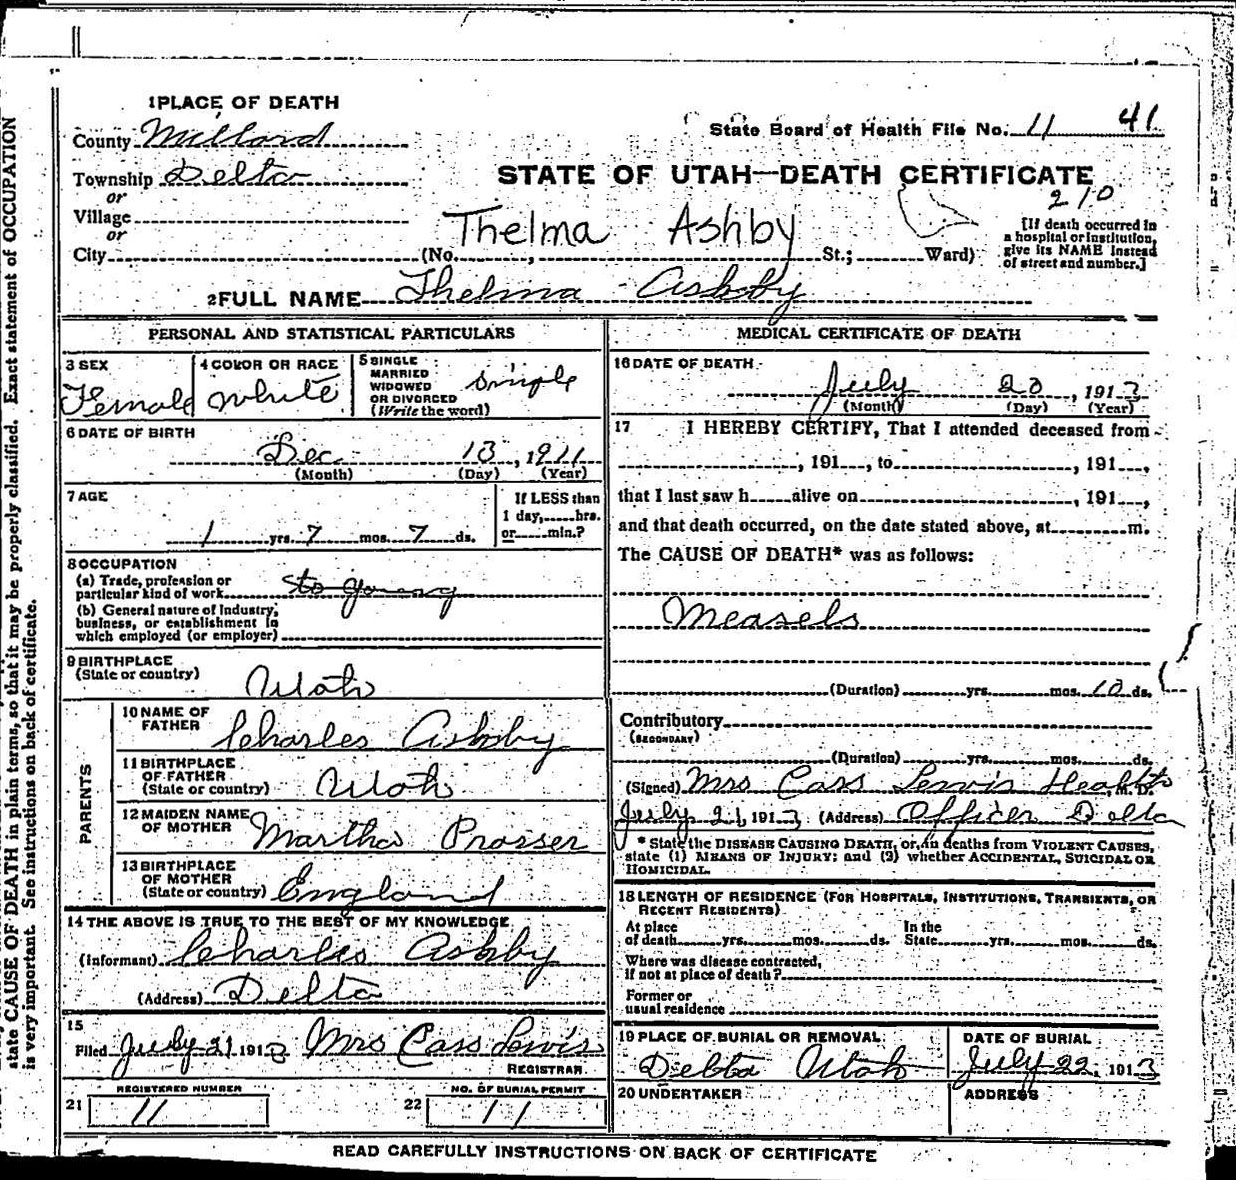 1 PLACE OF DEATH
County Millard
State Board of Health File No. 11 41
Township Delta
STATE OF UTAH—DEATH CERTIFICATE
or
210
Village
or
City (No. , St.; Ward)
Thelma Ashby
[If death occurred in
a hospital or institution,
give its NAME instead
of street and number.]
2 FULL NAME Thelma Ashby
PERSONAL AND STATISTICAL PARTICULARS
3 SEX
Female
4 COLOR OR RACE
White
5 SINGLE
MARRIED
WIDOWED
OR DIVORCED
(Write the word)
Single
6 DATE OF BIRTH
Dec 13, 1911
(Month) (Day) (Year)
7 AGE
1 yrs. 7 mos. 7 ds.
If LESS than
1 day, hrs.
or min.?
8 OCCUPATION
(a) Trade, profession or
particular kind of work to young
(b) General nature of Industry,
business, or establishment in
which employed (or employer)
9 BIRTHPLACE
(State or country)
Utah
PARENTS
10 NAME OF
FATHER
Charles Ashby
11 BIRTHPLACE
OF FATHER
(State or country)
Utah
12 MAIDEN NAME
OF MOTHER
Martha Prosser
13 BIRTHPLACE
OF MOTHER
(State or country)
England
14 THE ABOVE IS TRUE TO THE BEST OF MY KNOWLEDGE
(Informant) Charles Ashby
(Address) Delta
15
Filed July 21 1913 Mrs Cass Lewis
REGISTRAR
REGISTERED NUMBER
21 11
NO. OF BURIAL PERMIT
22 11
MEDICAL CERTIFICATE OF DEATH
16 DATE OF DEATH
July 20, 1913
(Month) (Day) (Year)
17 I HEREBY CERTIFY, That I attended deceased from
, 191 , to , 191 ,
that I last saw h alive on , 191 ,
and that death occurred, on the date stated above, at m.
The CAUSE OF DEATH* was as follows:
Measels
(Duration) yrs. mos. 10 ds.
Contributory
(SECONDARY)
(Duration) yrs. mos. ds.
(Signed) Mrs Cass Lewis Health
July 21, 1913 (Address) Officer Delta
* State the DISEASE CAUSING DEATH, or, in deaths from VIOLENT CAUSES,
state (1) MEANS OF INJURY; and (2) whether ACCIDENTAL, SUICIDAL OR
HOMICIDAL.
18 LENGTH OF RESIDENCE (FOR HOSPITALS, INSTITUTIONS, TRANSIENTS, OR
RECENT RESIDENTS)
At place In the
of death yrs. mos. ds. State yrs. mos. ds.
Where was disease contracted,
if not at place of death?
Former or
usual residence
19 PLACE OF BURIAL OR REMOVAL
Delta Utah
DATE OF BURIAL
July 22, 1913
20 UNDERTAKER
ADDRESS
READ CAREFULLY INSTRUCTIONS ON BACK OF CERTIFICATE
state CAUSE OF DEATH in plain terms, so that it may be properly classified. Exact statement of OCCUPATION
is very important. See instructions on back of certificate.